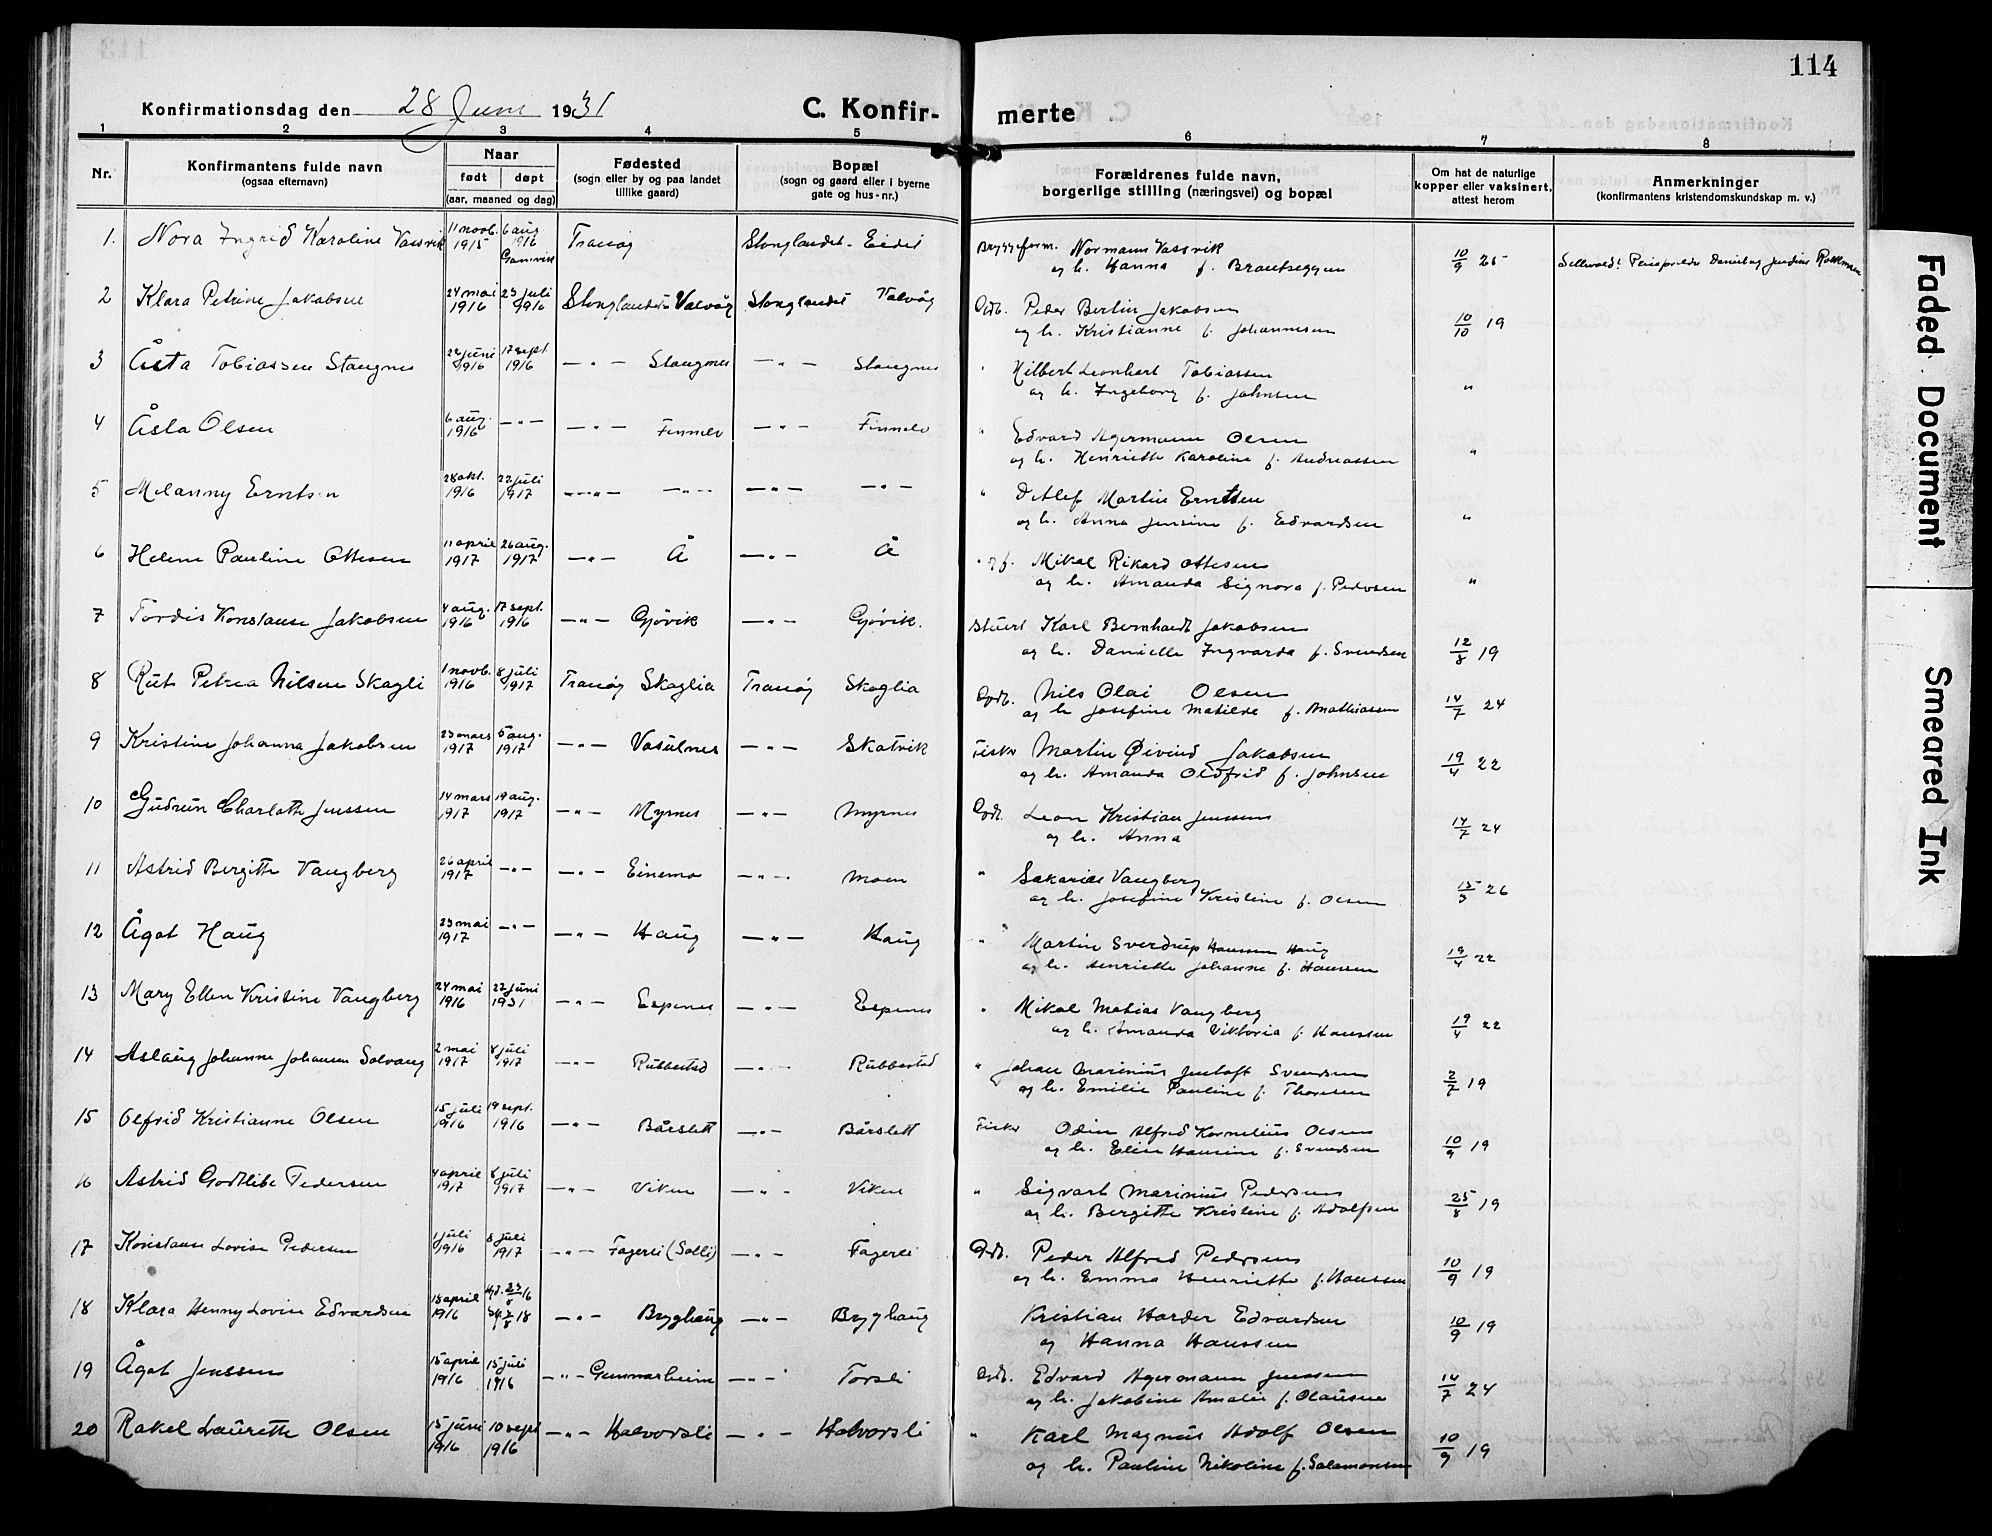 114
Konfirmationsdag den 28 Juni 1931
C. Konfir-merte
1 2 3 4 5 6 7 8
Nr.
Konfirmantens fulde navn
(ogsaa efternavn)
Naar
født døpt
(aar, maaned og dag)
Fødested
(sogn eller by og paa landet
tillike gaard)
Bopæl
(sogn og gaard eller i byerne
gate og hus-nr.)
Forældrenes fulde navn,
borgerlige stilling (næringsvei) og bopæl
Om hat de naturlige
kopper eller vaksinert,
attest herom
Anmerkninger
(konfirmantens kristendomskundskap m. v.)
1. Nora Ingrid Karoline Vassvik 11 novb. 1915 6 aug 1916 Gamvik Tranøy Stonglandet - Eidet Normann Vassvik
og h. Hanna f. 10/9 25
2 Klara Petrine Jakobsen 24 mai 1916 23 juli 1916 Stonglandets Valvåg Stonglandet Valvåg Gdb. Peder Berlin Jakobsen
og h. Kristianne f. Johannesen 10/10 19
3 Åsta Tobiassen Stangnes 22 juni 1916 17 sept. 1916 — " — Stangnes — " — Stangnes " Hilbert Leonhart Tobiassen
og h. Ingeborg f. Johnsen "
4 Åsla Olsen 6 aug. 1916 — " — — " — Finnelv — " — Finnelv " Edvard Agermann Olsen
og h. Henriette Karoline f. Andreassen "
5 Melanny Erntsen 28 okt. 1916 22 juli 1917 — " — — " — — " — — " — " Detlef Martin Erntsen
og h. Anna Jensine f. Edvardsen "
6 Helene Pauline Ottesen 11 april 1917 26 aug. 1917 — " — Å — " — Å " og f. Mikal Rikard Ottesen
og h. Amanda Signora f. Pedersen "
7 Tordis Konstanse Jakobsen 4 aug. 1916 17 sept. 1916 — " — Gjøvik — " — Gjøvik. Stuert Karl Bernhardt Jakobsen
og h. Danielle Ingvarda f. Svendsen 12/8 19
8 Rut Petrea Nilsen Skagli 1 novb. 1916 8 juli 1917 Tranøy Skaglia Tranøy Skaglia Gdb. Nils Olai Olsen
og h Josefine Matilde f. Mathiassen 14/7 24
9 Kristine Johanna Jakobsen 23 mars 1917 5 aug. 1917 — " — Vasulnes — " — Skatvik Fisker Martin Øivind Jakobsen
og h. Amanda Oldfrid f. Johnsen 19/4 22
10 Gudrun Charlotte Jenssen 14 mars 1917 19 aug. 1917 — " — Myrnes — " — Myrnes Gdb. Leon Kristian Jenssens
og h. Anna 14/7 24
11 Astrid Bergitte Vangberg 26 april 1917 — " — — " — Einemo — " — Moen " Sakarias Vangberg
og h. Josefine Kristine f. Olsen 26
12 Ågot Haug 23 mai 1917 — " — — " — Haug — " — Haug " Martin Sverdrup Hanssen Haug
og h. Henriette Johanne f. Hanssen 19/4 22
13 Mary Ellen Kristine Vangberg 24 mai 1916 27 juni 1931 — " — Espenes — " — Espenes " Mikal Matias Vangberg
og h. Amanda Viktoria f. Hanssen 19/4 22
14 Aslaug Johanne Johansen Solvang 2 mai 1917 8 juli 1917 — " — Rubbestad — " — Rubbestad " Johan Marinius Jentoft Svendsen
og h. Emilie Pauline f. Thoresen 2/7 19
15 Olfrid Kristianne Olsen 15 juli 1916 19 sept. 1916 — " — Bårslett — " — Bårslett Fisker Odin Alfred Kornelius Olsen
og h. Elise Hansine f. Svendsen 10/9 19
16 Astrid Godtlibe Pedersen 4 april 1917 8 juli 1917 — " — Viken — " — Viken " Sigvart Marinius Pedersen
og h. Bergitte Kristine f. Adolfsen 25/8 19
17 Konstanse Lovise Pedersen 1 juli 1916 8 juli 1917 — " — Fagerli (Solli) — " — Fagerli Gdb. Peder Alfred Pedersens
og h. Emma Henriette f. Hanssen 10/9 19
18 Klara Henny Lovise Edvardsen 18 april 1916 — " — Brygghaug — " — Brygghaug Kristian Harder Edvardsen
og Hanna Hanssen 10/9 19
19 Ågot Jenssen 15 april 1916 15 juli 1916 — " — Gunnarheim — " — Torsli Gdb. Edvard Agermann Jenssen
og h. Jakobine Amalie f. Olaussen 14/7 24
20 Rakel Laurette Olsen 15 juni 1916 10 sept 1916 — " — Halvorsli — " — Halvorsli " Karl Magnus Adolf Olsen
og h. Pauline Nikoline f. Salamonsen 10/9 19
Faded Document
Smeared Ink